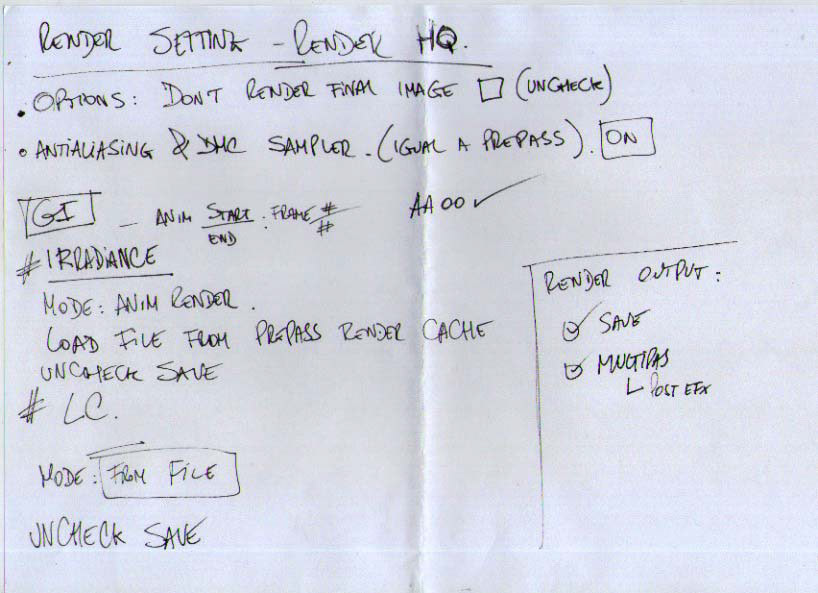 RENDER SETTING - RENDER HQ.
• OPTIONS: DON'T RENDER FINAL IMAGE ☐ (UNCHECK)
• ANTIALIASING & DMC SAMPLER. (IGUAL A PREPASS). ON
GI - ANIM START : FRAME #
END #
AA 00 ✓
# IRRADIANCE
MODE: ANIM RENDER.
LOAD FILE FROM PREPASS RENDER CACHE
UNCHECK SAVE
# LC.
MODE: FROM FILE
UNCHECK SAVE
RENDER OUTPUT:
☑ SAVE
☑ MULTIPAS
└ POST EFX